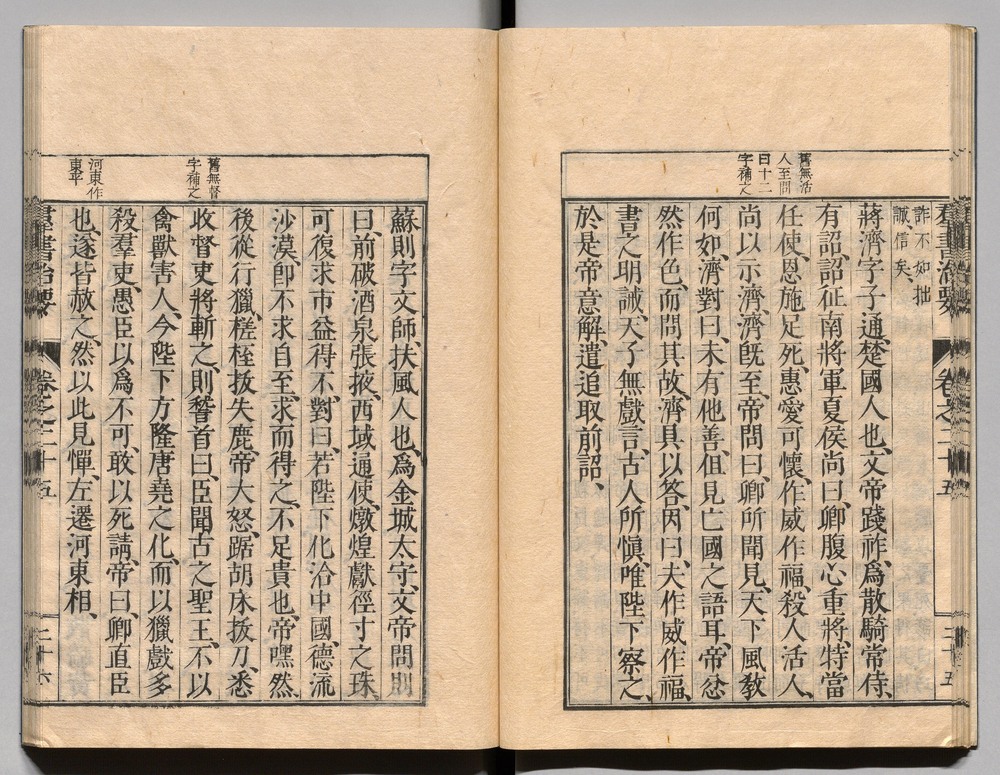 羣書治要
卷之二十五
二十五
詐不如拙
誠信矣、
舊無活
人至問
曰十二
字補之
蔣濟字子通、楚國人也、文帝踐祚、爲散騎常侍、
有詔、詔征南將軍夏侯尚曰、卿腹心重將、特當
任使、恩施足死、惠愛可懷、作威作福、殺人活人、
尚以示濟、濟既至、帝問曰、卿所聞見、天下風教
何如、濟對曰、未有他善、但見亡國之語耳、帝忿
然作色、而問其故、濟具以答、因曰、夫作威作福、
書之明誡、天子無戲言、古人所愼、唯陛下察之、
於是帝意解、遣追取前詔、
舊無督
字補之
河東作
東平
蘇則字文師、扶風人也、爲金城太守、文帝問則
曰、前破酒泉張掖、西域通使、燉煌獻徑寸之珠、
可復求市益得不、對曰、若陛下化洽中國、德流
沙漠、卽不求自至、求而得之、不足貴也、帝嘿然、
後從行獵、槎桎拔失鹿、帝大怒、踞胡床拔刀、悉
收督吏、將斬之、則稽首曰、臣聞古之聖王、不以
禽獸害人、今陛下方隆唐堯之化、而以獵戲多
殺羣吏、愚臣以爲不可、敢以死請、帝曰、卿直臣
也、遂皆赦之、然以此見憚、左遷河東相、
羣書治要
卷之二十五
二十六